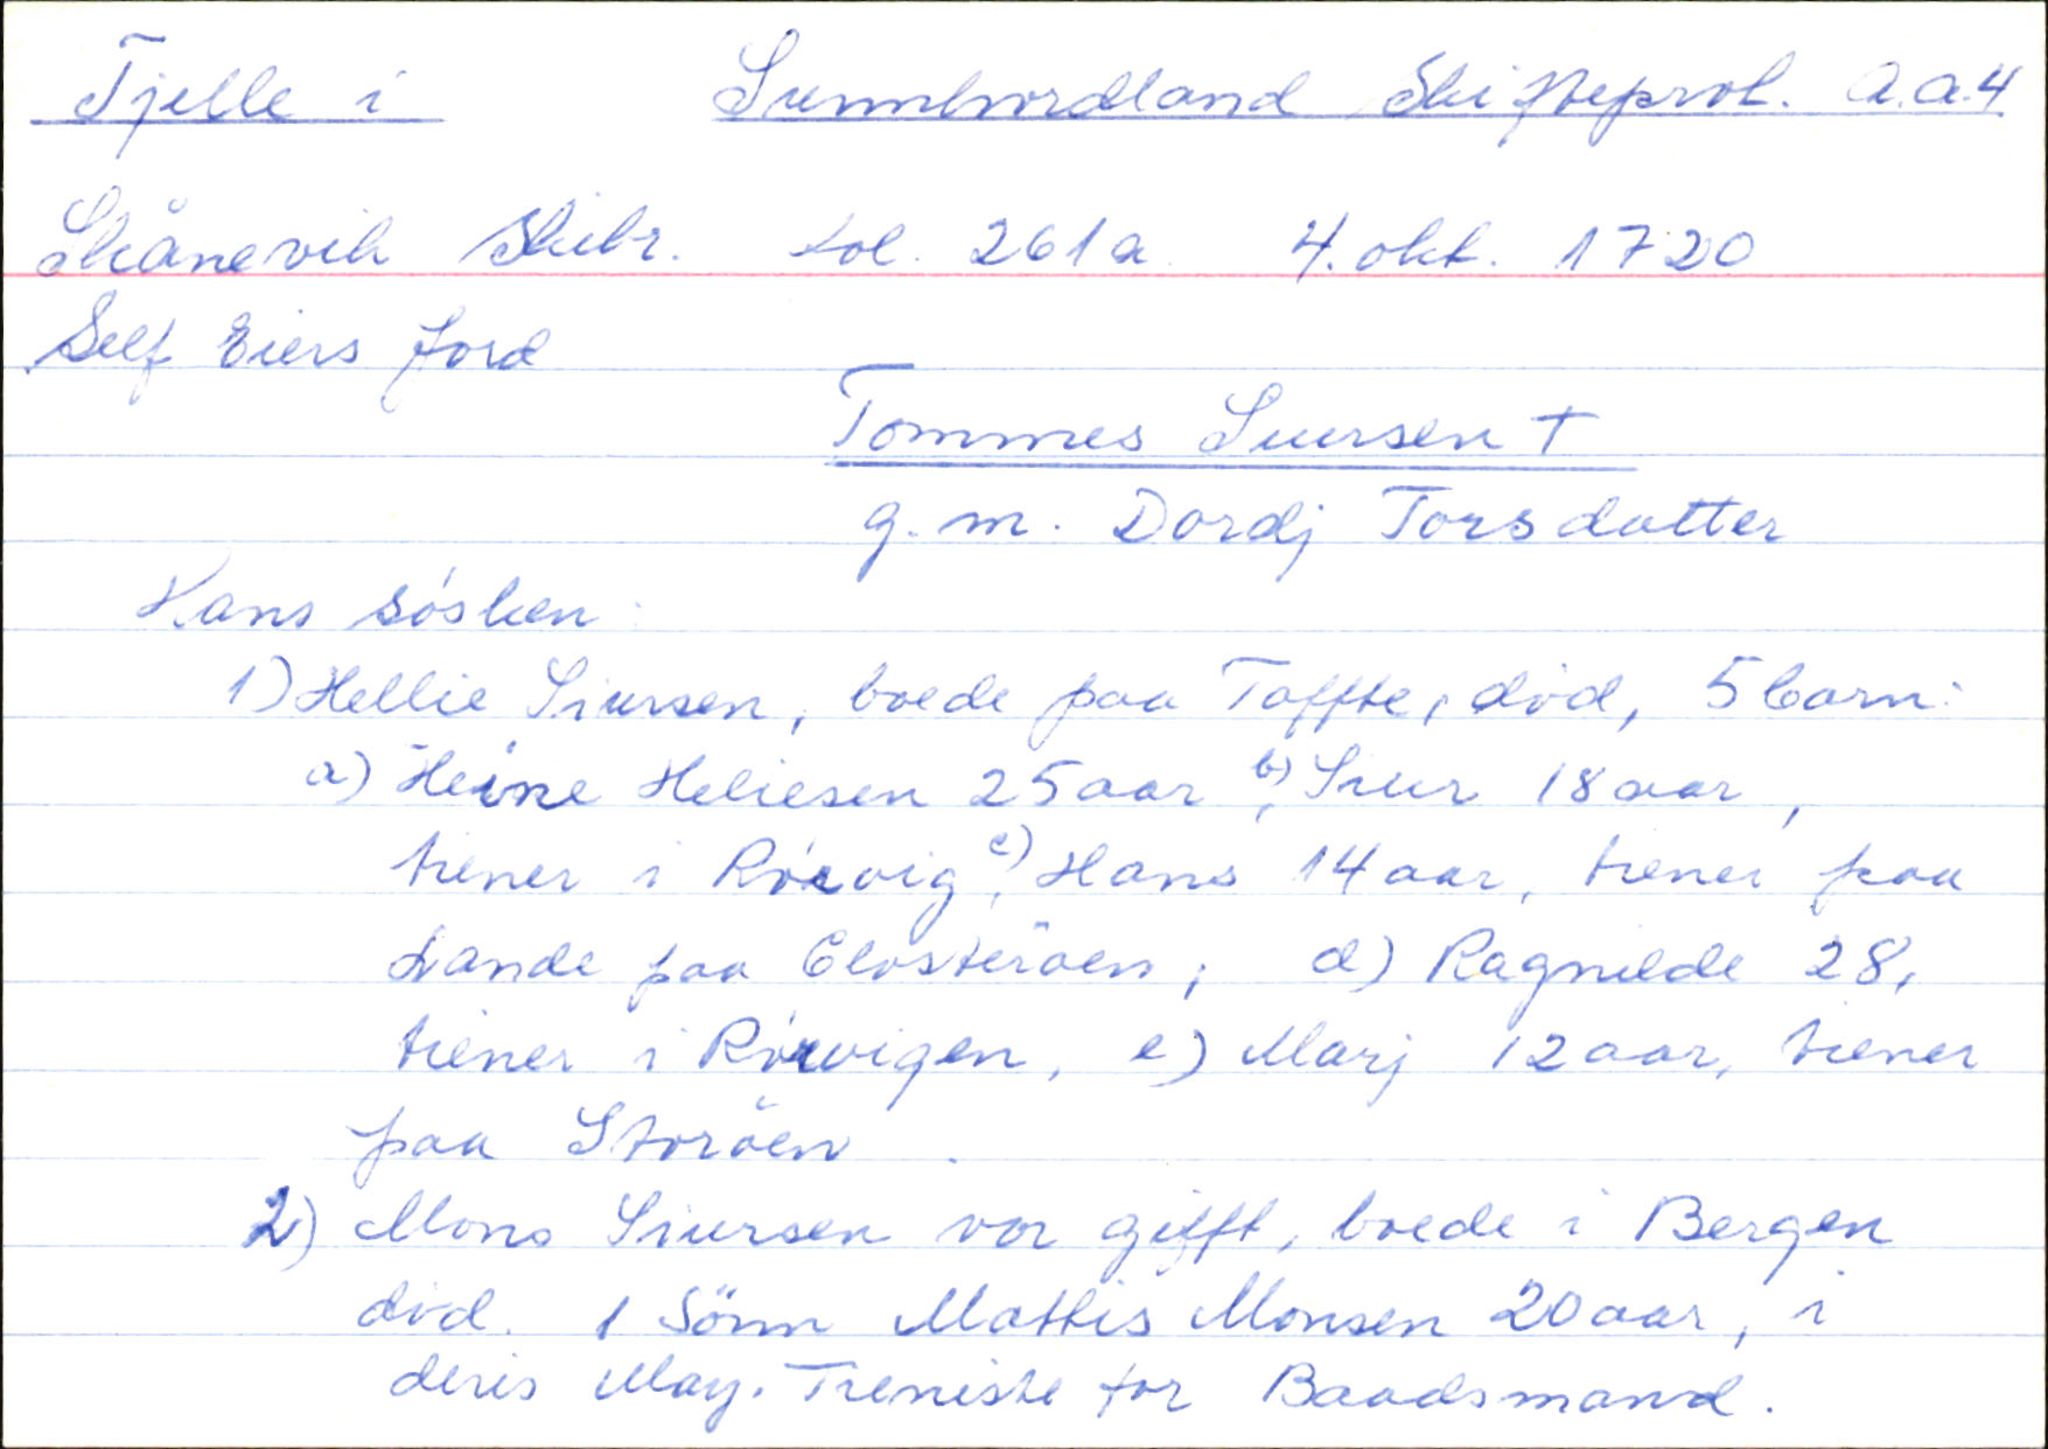 Tjelle i Sunnhordland Skifteprot. A.a.4
Skånevik Skibr. fol. 261a 4. okt. 1720
Self Eiers Jord
Tommes Siursen †
g. m. Dordj Torsdatter
Hans sósken:
1) Hellie Siursen, boede paa Toffte, död, 5 barn:
a) Heine Heliesen 25 aar, b) Siur 18 aar,
tiener i Rörvig, c) Hans 14 aar, tiener paa
Lande paa Closteröen; d) Ragnilde 28,
tiener i Rörvigen, e) Marj 12 aar, tiener
paa Storöen.
2) Mons Siursen var gifft, boede i Bergen
död. 1 Sönn Mattis Monsen 20 aar, i
deris May. Tieniste for Baadsmand.